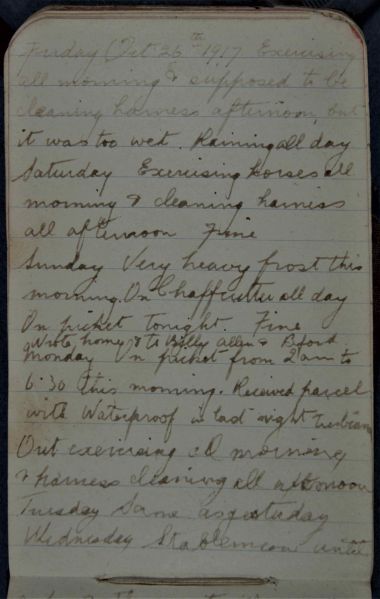 Friday Oct 26th 1917 Exercising
all morning & supposed to be
cleaning harness afternoon, but
it was too wet. Raining all day
Saturday Exercising horses all
morning & cleaning harness
all afternoon Fine
Sunday Very heavy frost this
morning. On Chaffcutter all day
On picket tonight. Fine
Wrote home, & to Billy Allen &
Monday On picket from 2 am to
6.30 this morning. Received parcel
with Waterproof in last night
Out exercising all morning
& harness cleaning all afternoon
Tuesday Same as yesterday
Wednesday Stables until